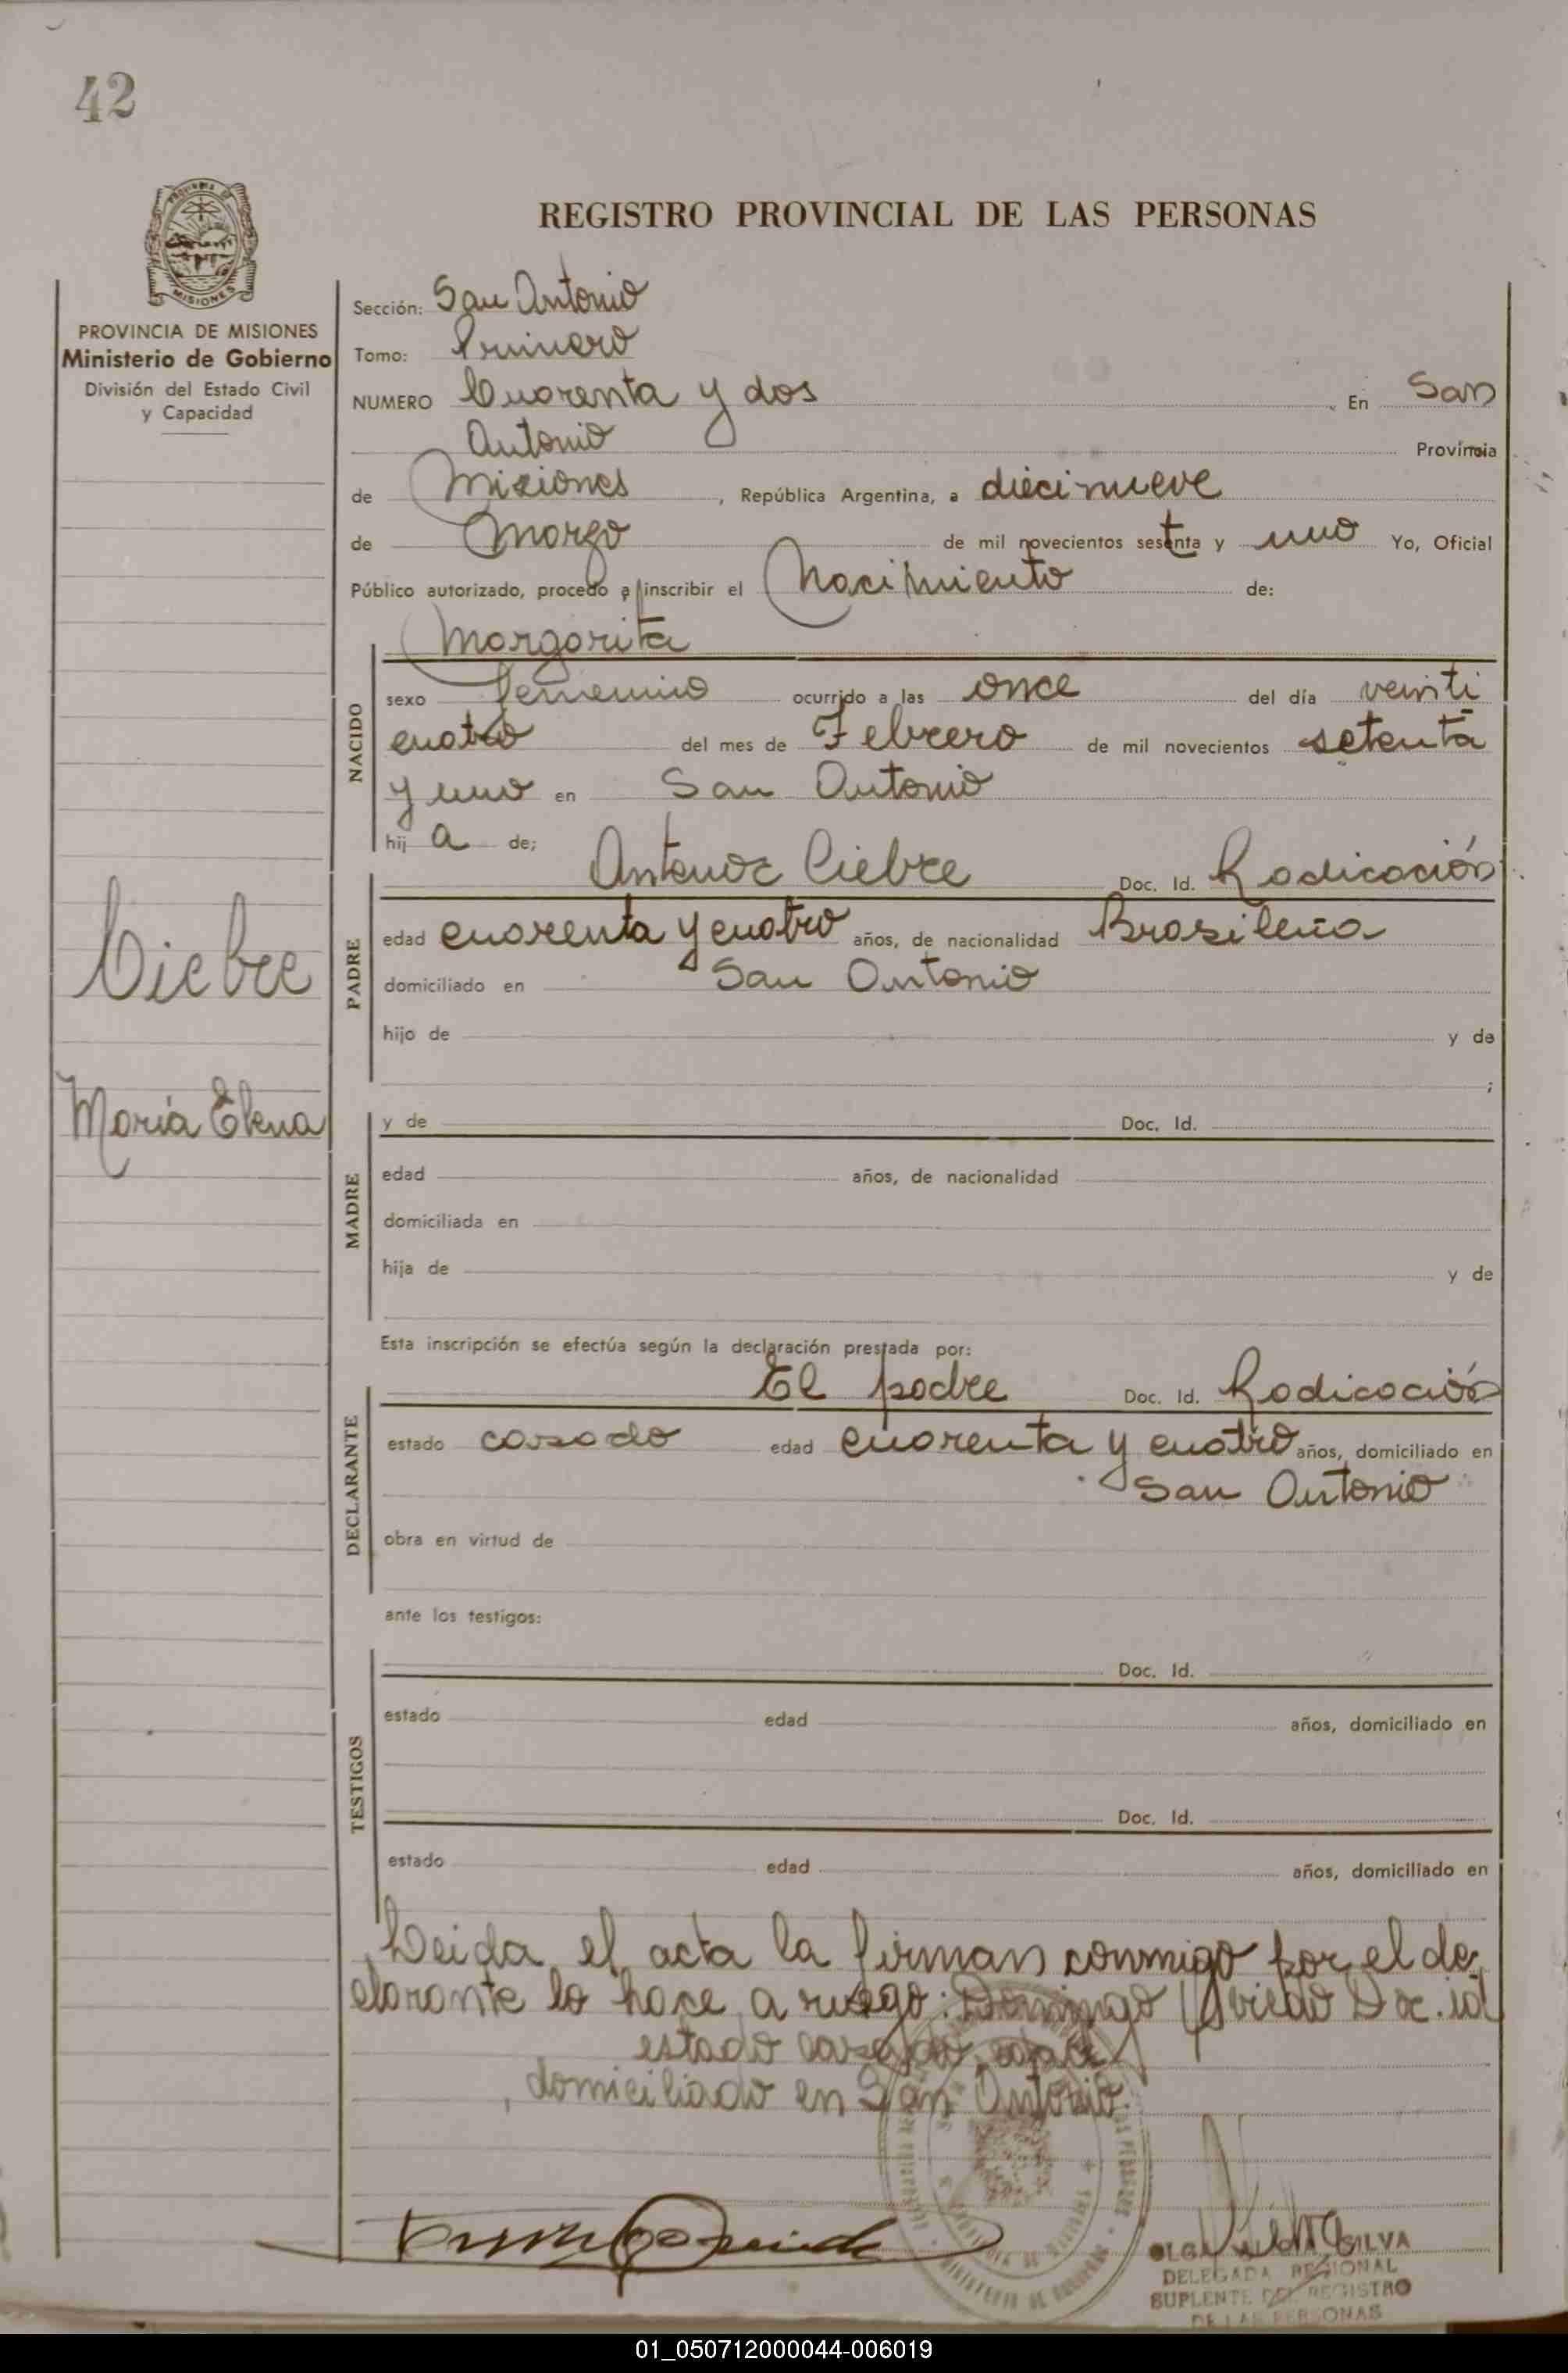 42
REGISTRO PROVINCIAL DE LAS PERSONAS
MISIONES
PROVINCIA DE MISIONES
Ministerio de Gobierno
División del Estado Civil
y Capacidad
Sección: San Antonio
Tomo: Primero
NUMERO Cuarenta y dos . En San
Antonio Provincia
de Misiones , República Argentina, a diecinueve
de Marzo de mil novecientos setenta y uno Yo, Oficial
Público autorizado, procedo a inscribir el Nacimiento de:
Margarita
NACIDO
sexo femenino ocurrido a las once del día veinti
cuatro del mes de Febrero de mil novecientos setenta
y uno en San Antonio
hij a de;
Antenor Ciebre Doc. Id. Radicación
PADRE
edad cuarenta y cuatro años, de nacionalidad Brasileña
domiciliado en San Antonio
hijo de y de
;
Ciebre
María Elena
y de Doc. Id.
MADRE
edad años, de nacionalidad
domiciliada en
hija de y de
Esta inscripción se efectúa según la declaración prestada por:
El padre Doc. Id. Radicación
DECLARANTE
estado casado edad cuarenta y cuatro años, domiciliado en
San Antonio
obra en virtud de
ante los testigos:
TESTIGOS
Doc. Id.
estado edad años, domiciliado en
Doc. Id.
estado edad años, domiciliado en
Leida el acta la firman conmigo por el de
clarante lo hace a ruego: Domingo Oviedo Doc. id
estado casado,
domiciliado en San Antonio.
OLGA SILVA
DELEGADA REGIONAL
SUPLENTE DEL REGISTRO
DE LAS PERSONAS
01_050712000044-006019